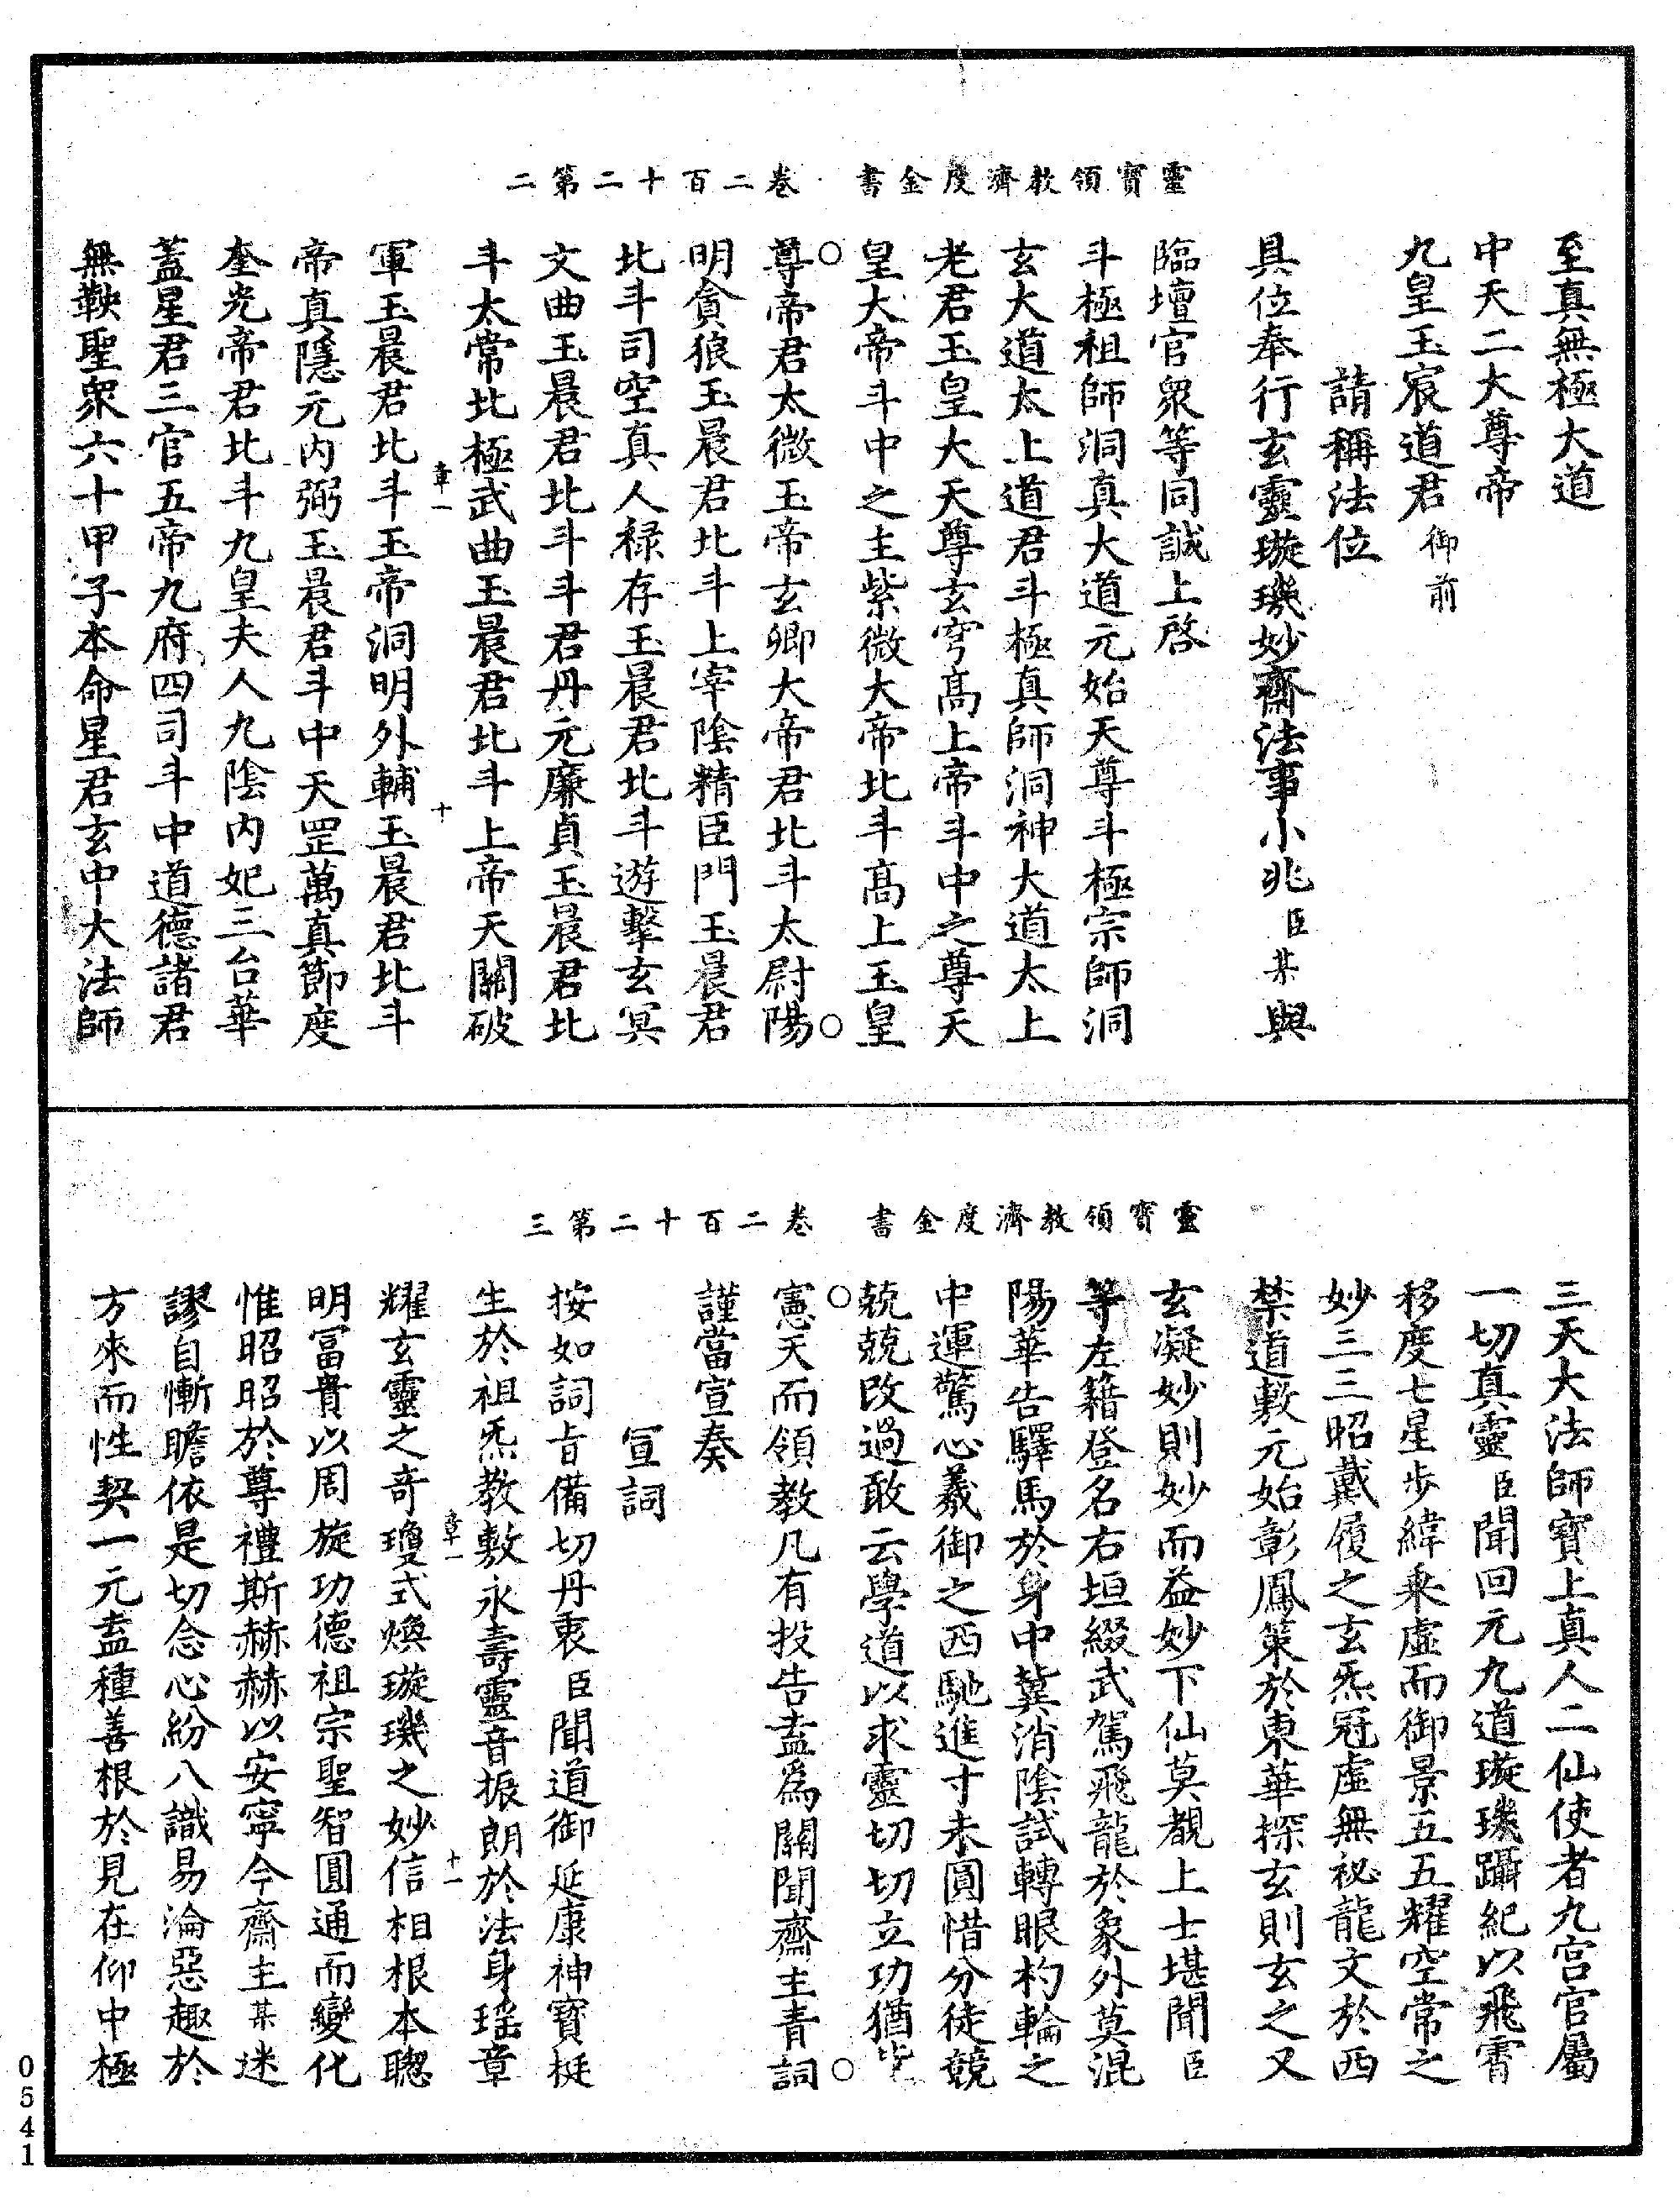 靈寶領教濟度金書 卷二百十二第二
至真無極大道
中天二大尊帝
九皇玉宸道君御前
請稱法位
具位奉行玄靈璇璣妙齋法事小兆臣某與
臨壇官衆等同誠上啓
斗極祖師洞真大道元始天尊斗極宗師洞
玄大道太上道君斗極真師洞神大道太上
老君玉皇大天尊玄穹高上帝斗中之尊天
皇大帝斗中之主紫微大帝北斗高上玉皇
尊帝君太微玉帝玄卿大帝君北斗太尉陽
明貪狼玉晨君北斗上宰陰精臣門玉晨君
北斗司空真人禄存玉晨君北斗遊擊玄冥
文曲玉晨君北斗斗君丹元廉貞玉晨君北
斗太常北極武曲玉晨君北斗上帝天關破
章一 十
軍玉晨君北斗玉帝洞明外輔玉晨君北斗
帝真隱元内弼玉晨君斗中天罡萬真節度
奎光帝君北斗九皇夫人九陰内妃三台華
蓋星君三官五帝九府四司斗中道德諸君
無鞅聖衆六十甲子本命星君玄中大法師
靈寶領教濟度金書 卷二百十二第三
三天大法師寶上真人二仙使者九宫官屬
一切真靈臣聞回元九道璇璣躡紀以飛霄
移度七星步緯乘虛而御景五五耀空常之
妙三三昭戴履之玄炁冠虛無祕龍文於西
禁道敷元始彰鳳策於東華探玄則玄之又
玄凝妙則妙而益妙下仙莫覩上士堪聞臣
等左籍登名右垣綴武駕飛龍於象外莫混
陽華告驛馬於身中冀消陰試轉眼杓輪之
中運驚心羲御之西馳進寸未圓惜分徒競
兢兢改過敢云學道以求靈切切立功猶
憲天而領教凡有投告盍爲關聞齋主青詞
謹當宣奏
宣詞
按如詞旨備切丹衷臣聞道御延康神寶挺
生於祖炁教敷永壽靈音振朗於法身瑶章
章一 十一
耀玄靈之奇瓊式煥璇璣之妙信相根本聰
明冨貴以周旋功德祖宗聖智圓通而變化
惟昭昭於尊禮斯赫赫以安寧今齋主某迷
謬自慚瞻依是切念心紛八識易淪惡趣於
方來而性契一元盍種善根於見在仰中極
0541